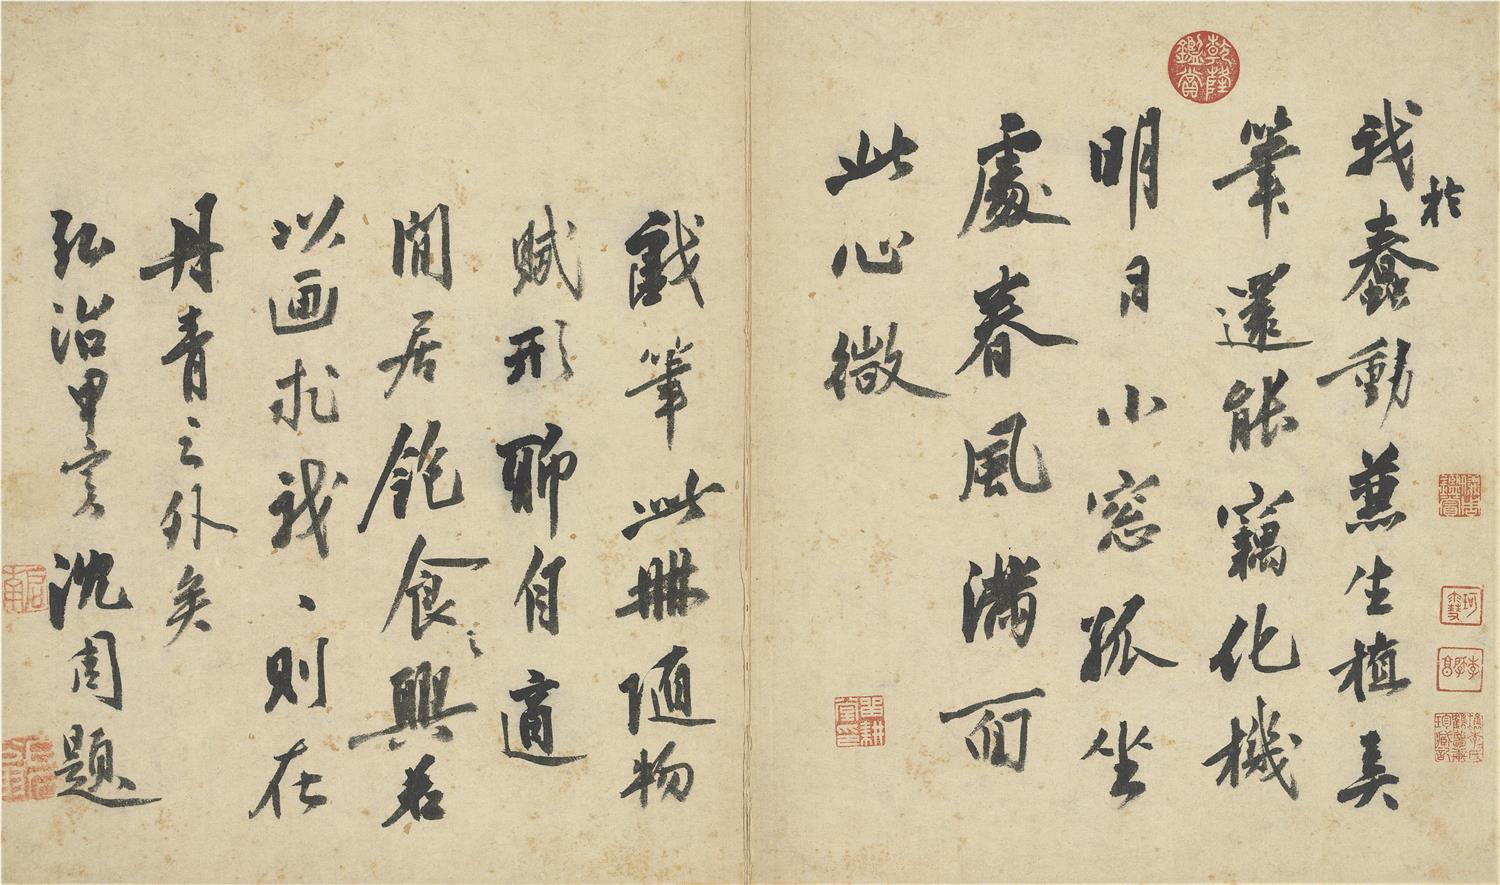 乾隆鑑賞
我於蠢動兼生植弄
筆還能竊化機
明日小窓孤坐
處春風滿面
此心微
戲筆此冊隨物
賦形聊自適
閒居飽食之興若
以画求我、則在
丹青之外矣
弘治甲寅沈周題
啟南